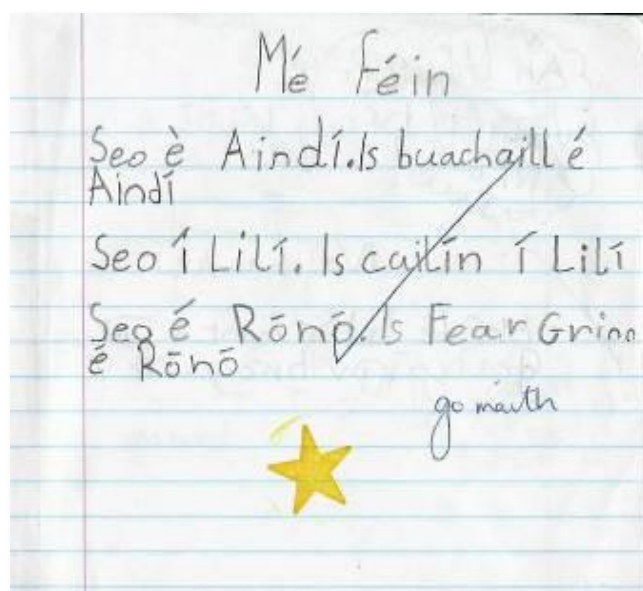 Mé Féin
Seo è Aindí. Is buachaill é
Aindí
Seo í Lilí. Is cailín í Lilí
Seo é Rōnō. Is Fear Grinn
é Rōnō
go maith